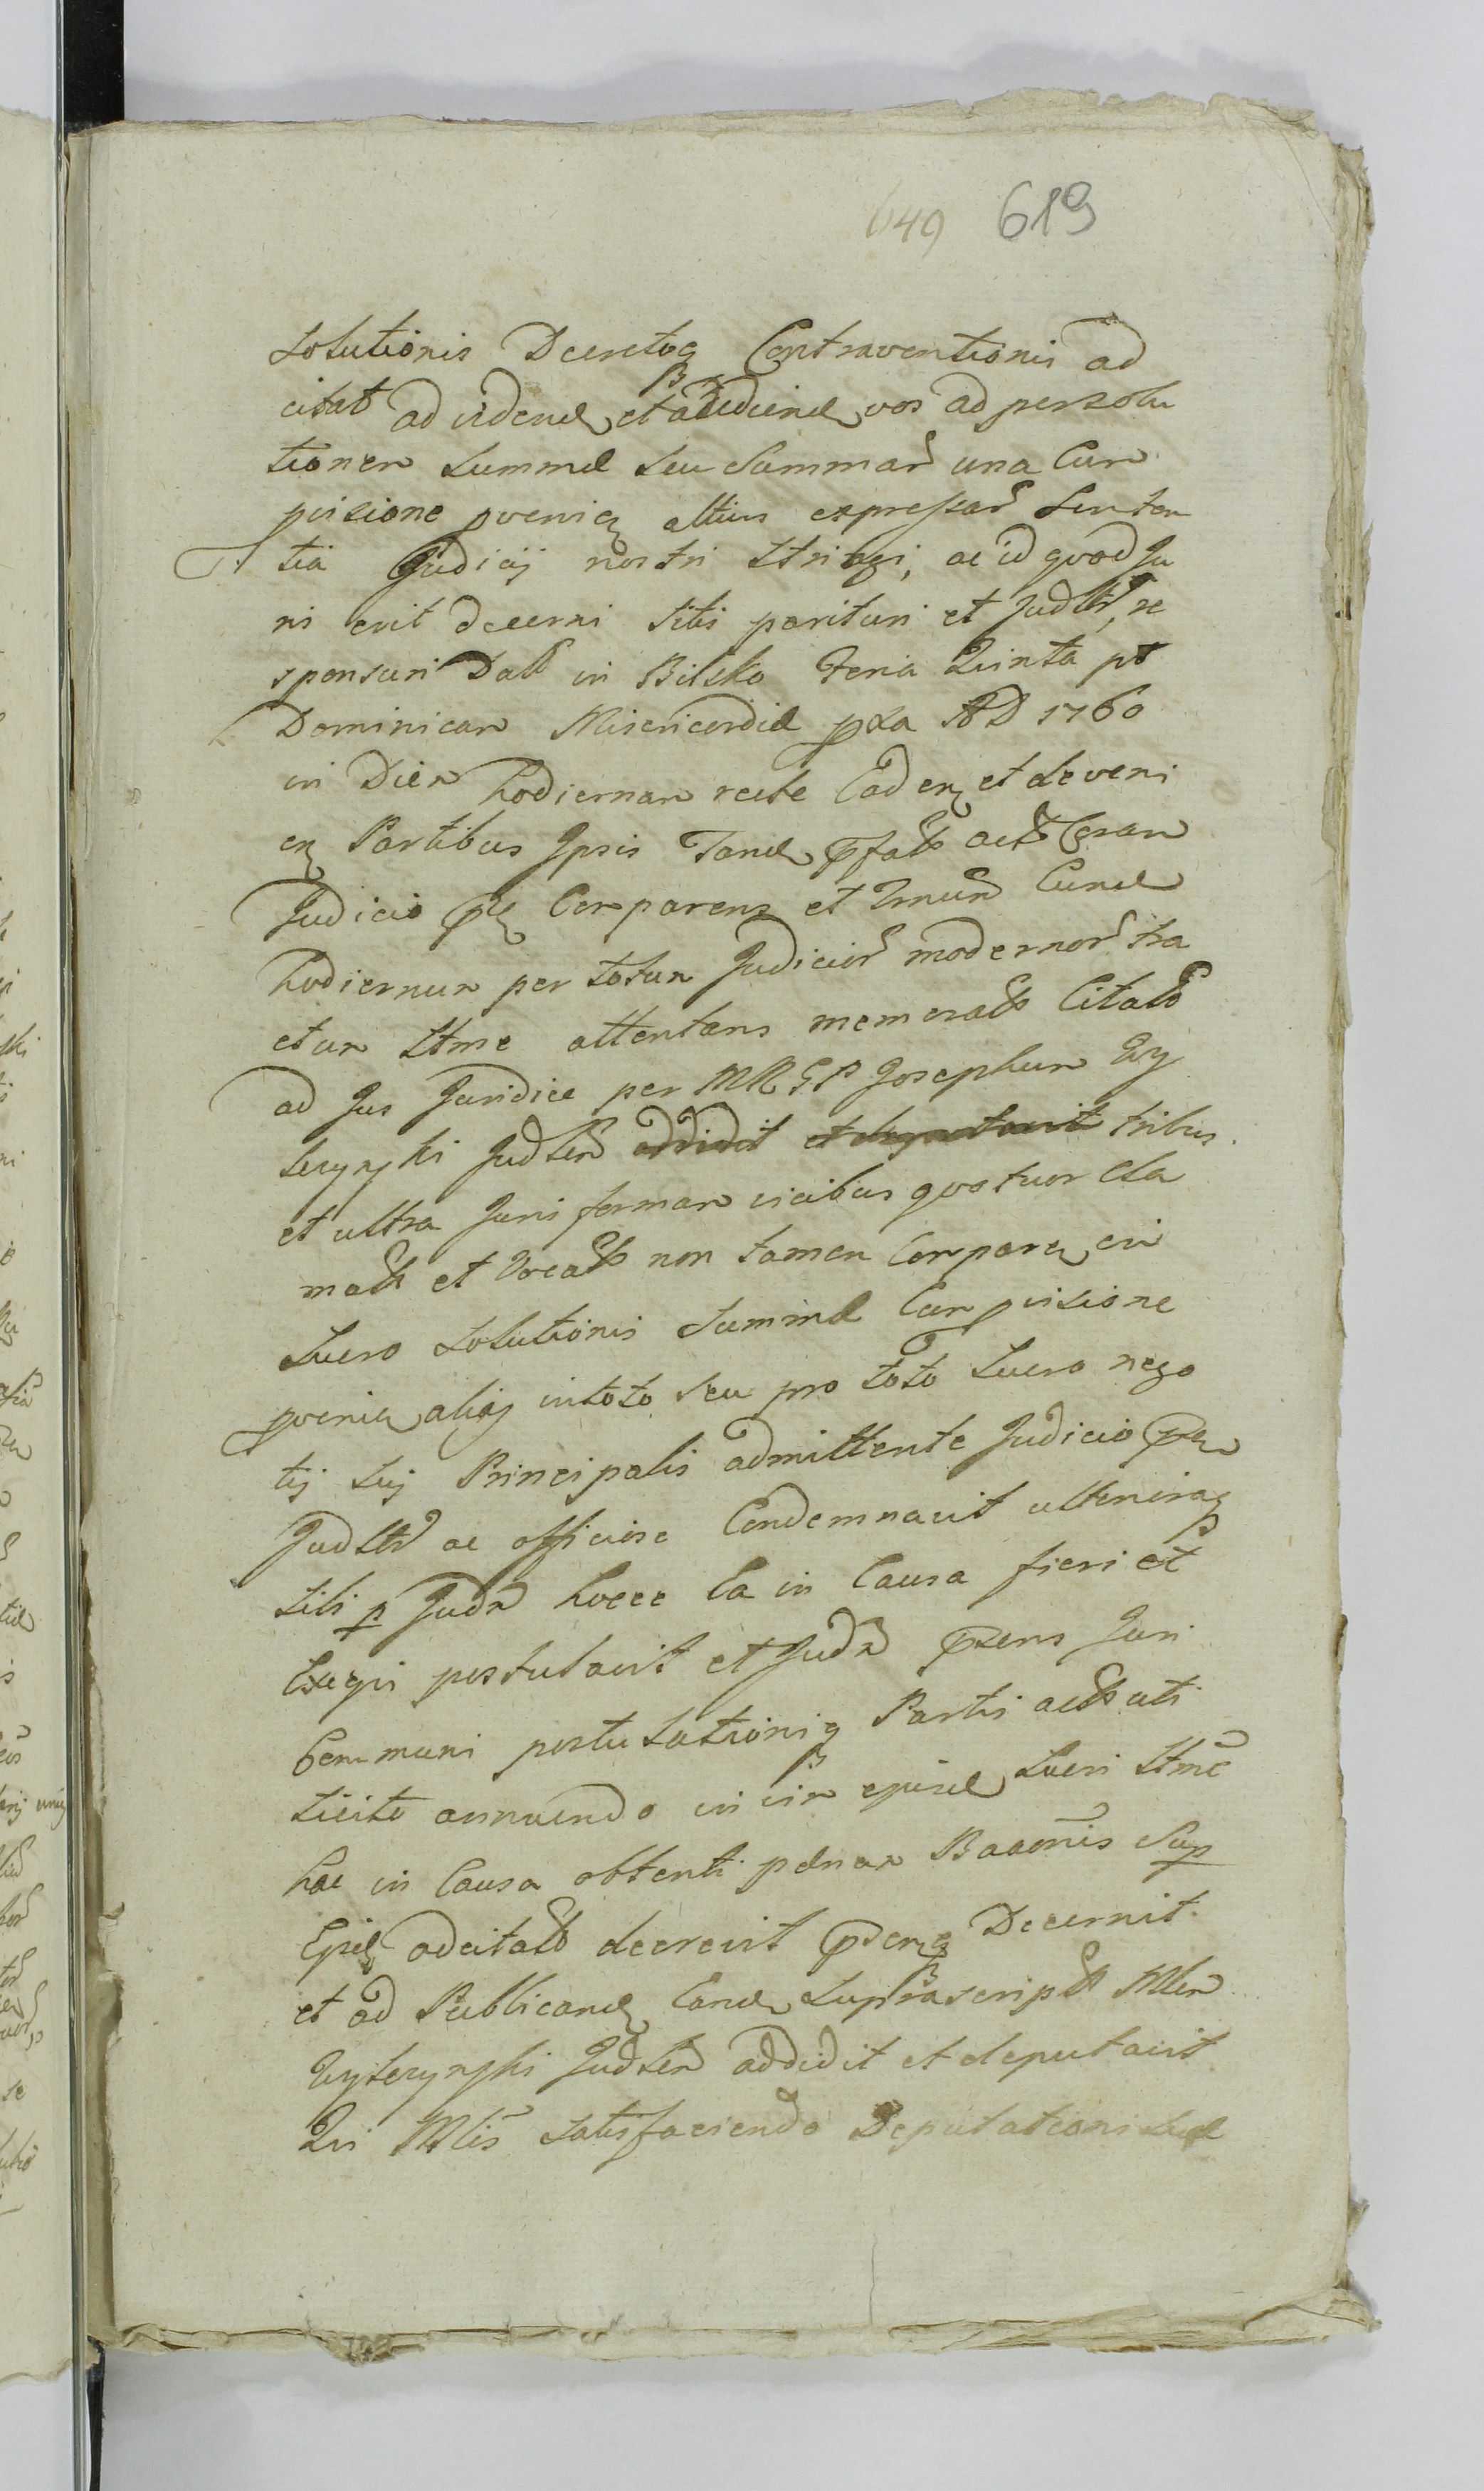 649 619
solutionis Decretoq Contraventionis ad
citat ad videnđ et audiendđ vos ad persolu
tionem summæ seu summarū una Cum
poenis altius expressar Senten
tia Judicij nostri stringi, ac id quod Ju
ris erit decerni sitis parituri et Judtr re
sponsuri Datt in Bilsko Feria Quinta pt
Dominicam Misericordiæ pxa AD 1760
in Diem hodiernam recte Caden et deveni
en Partibus Ipsis Tand pfatt act Coram
Judicio pñ Comparens et Trmum Cund
hodiernum per totum Judicior modernor tra
ctum Stme attentans memoratt Citatt
ad Jus Juridice per MRGP Josephum Wy
szczynski Judtr addidit et deputavit tribus
et ultra Juri formam vicibus quatuor cla
matt et Vocatt non tamen Comparen in
Lucro solutionis summæ Cum
poenis alias in toto seu pro toto Lucro nego
tij sui Principalis admittente Judicio
Judtr ac officiose Condemnavit
sibi p Judm hocce Ea in Causa fieri et
Exequi postulavit et Judm pñs Juri
Communi postulationiq Partis actt uti
licite annuendo in vim Lucri Stme
hac in Causa obtenti pœnam Banonis Sup
adcitatt decrevit Decernit
et ad Publicand Eand Suprascript Mlem
Wyszczynski Judtr addidit et deputavit
Qui Mlis satisfaciendo Deputationi suæ